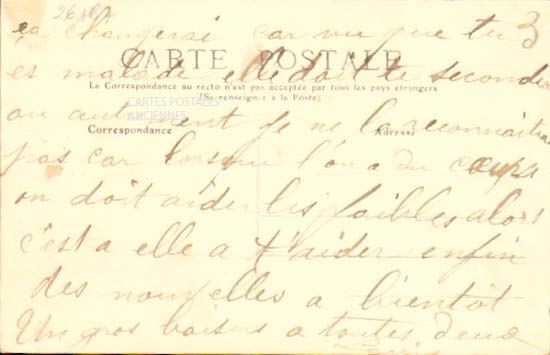 3
ça changerai car vu que tu
CARTE POSTALE
es malade elle doit te seconder
La Correspondance au recto n'est pas acceptée par tous les pays étrangers
(Se renseigner à la Poste)
CARTES POSTALES
ANCIENNES
ou autrement je ne la reconnaitrai
Correspondance
Adresse
pas car lorsque l'on a du cœur
on doit aider les faibles alors
c'est a elle a t'aider enfin
des nouvelles a bientôt
Un gros baisers a toutes deux